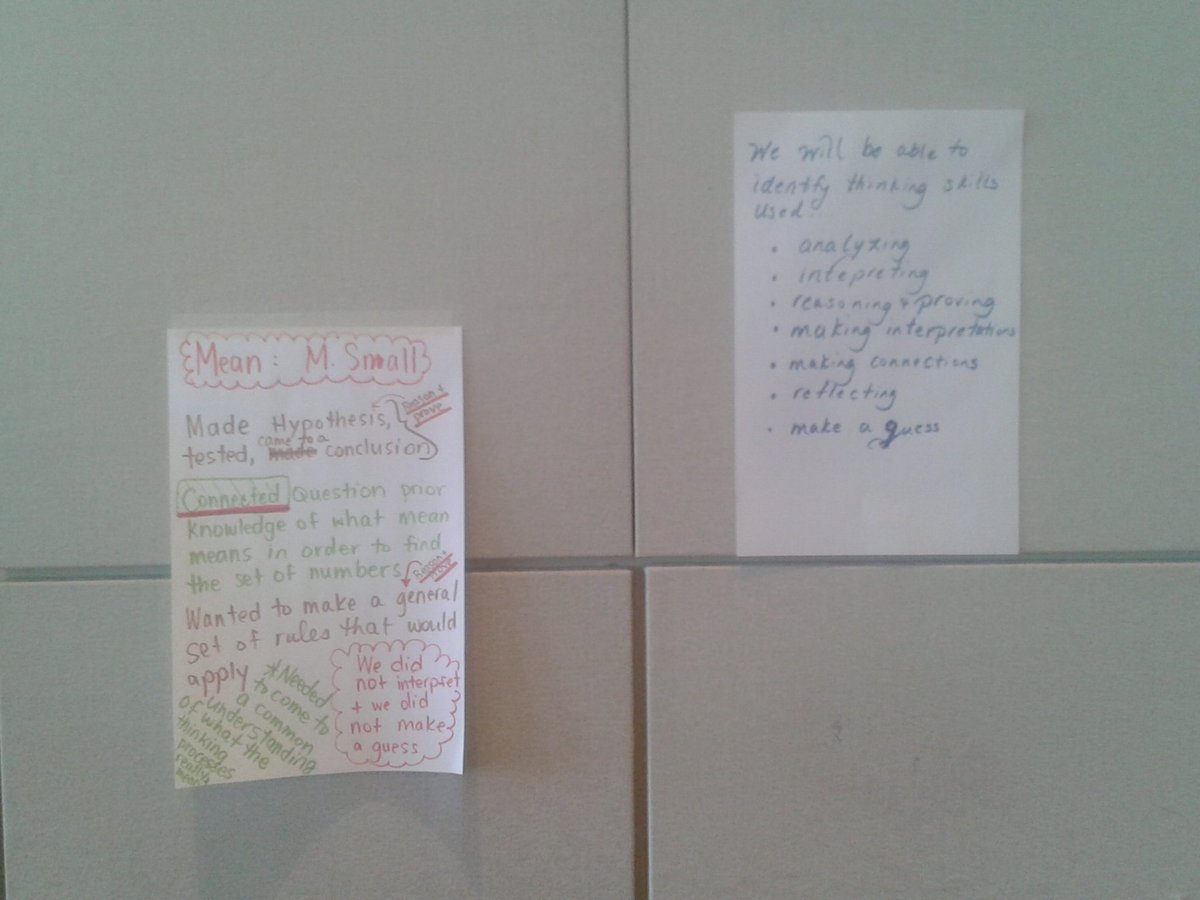 Mean: M. Small
Made Hypothesis,
Reason +
prove
came to a
tested, made conclusion
Connected Question prior
knowledge of what mean
means in order to find
the set of numbers
Reason +
prove
Wanted to make a general
set of rules that would
apply
*Needed
to come to
a common
understanding
of what the
thinking
processes
really
We did
not interpret
+ we did
not make
a guess
We will be able to
identify thinking skills
used:
• analyzing
• intepreting
• reasoning + proving
• making interpretations
• making connections
• reflecting
• make a guess